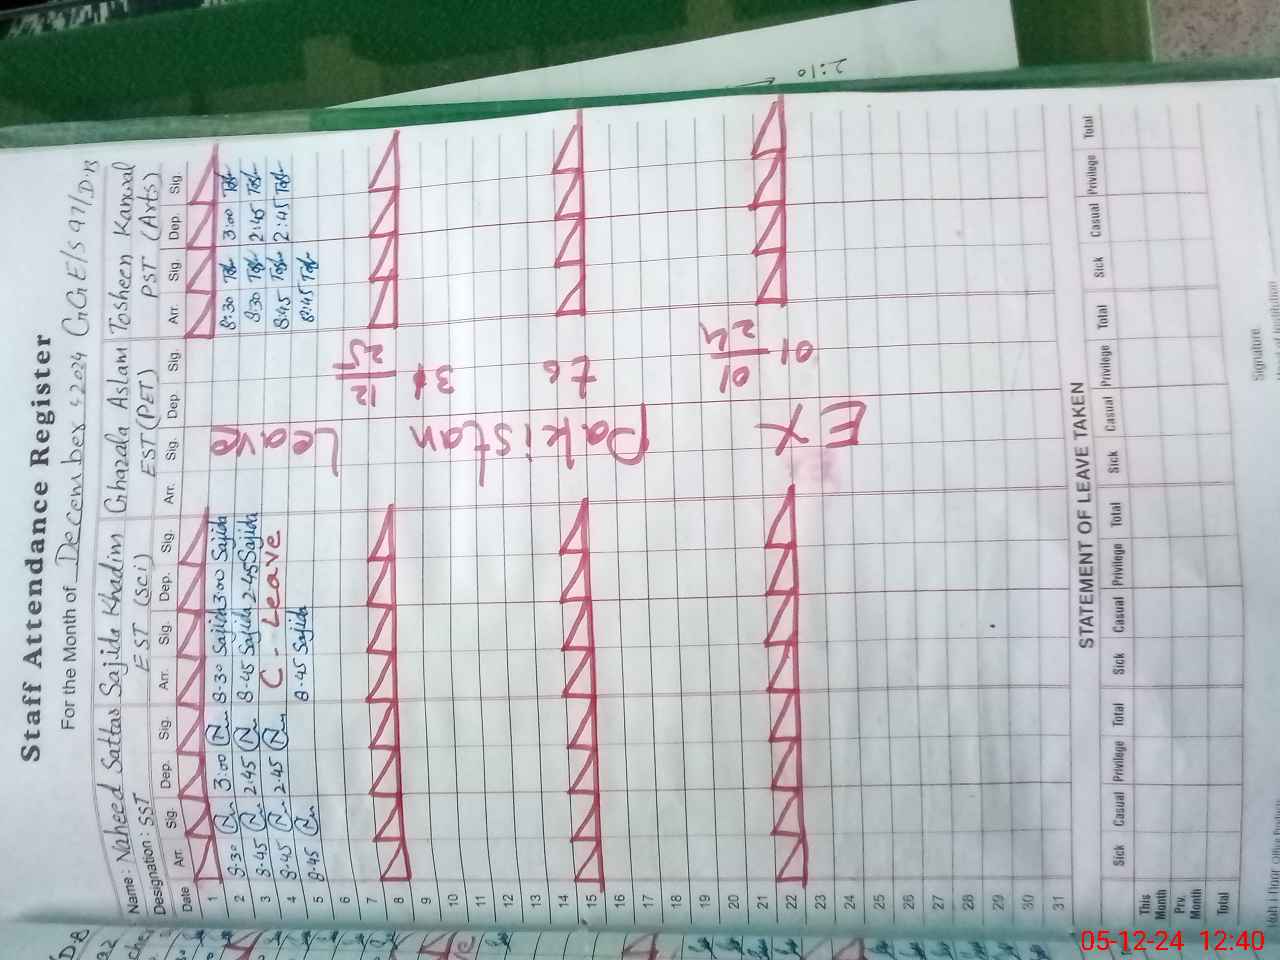 2:10
Staff Attendance Register
For the Month of December, 2024 GGE/S 97/D.B
Name : Naheed Sattar Sajida Khadim Ghazala Aslam Tosheen Kanwal
Designation : SST EST (Sci) EST (PET) PST (Arts)
Date Arr. Sig. Dep. Sig. Arr. Sig. Dep. Sig. Arr. Sig. Dep. Sig. Arr. Sig. Dep. Sig.
1
2 8.30 3:00 8.30 Sajida 3:00 Sajida 8:30 3:00
3 8.45 2.45 8.45 Sajida 2.45 Sajida 8:30 2:45
4 8.45 2.45 C - Leave 8:45 2:45
5 8.45 8.45 Sajida 8:45
6
7
8
9
10
11
12
13
14
15
16
17
18
19
20
21
22
23
24
25
26
27
28
29
30
31
Ex Pakistan Leave
STATEMENT OF LEAVE TAKEN
Sick Casual Privilege Total Sick Casual Privilege Total Sick Casual Privilege Total Sick Casual Privilege Total
This Month
Prv. Month
Total
Signature
05-12-24 12:40